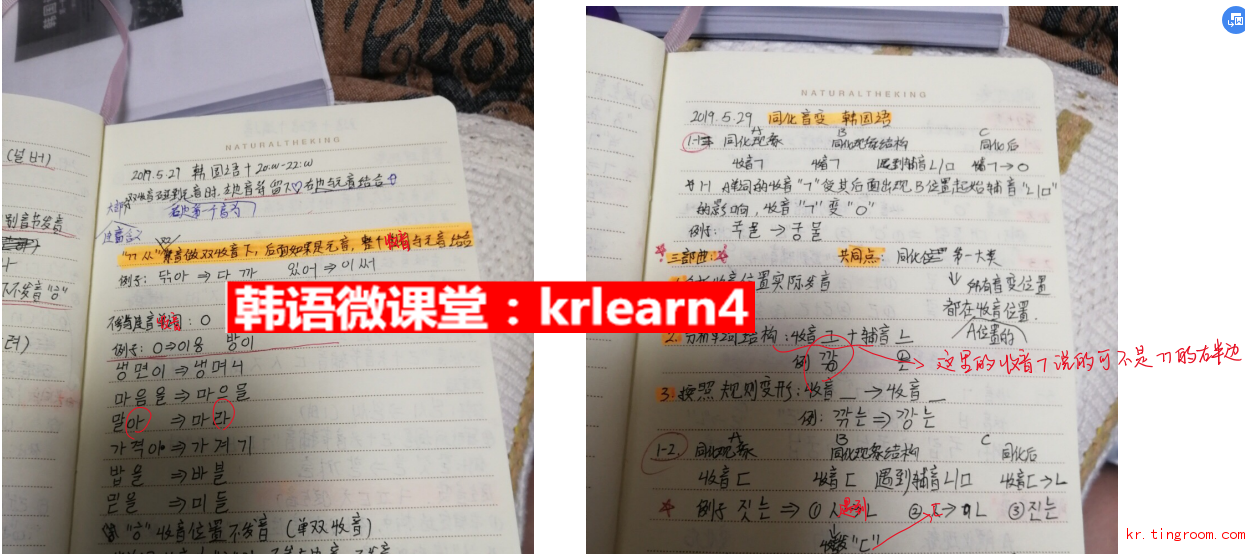 NATURALTHEKING
2019.5.27 韩国语 + 20:00-22:00
双收音碰到元音时,左边音节留下,右边与元音结合
大部分
连音含义
"ㄲ ㅆ" 紧音做双收音下,后面如果是元音,整个收音与元音结合
例子: 닦아 ⇒ 다 까 있어 ⇒ 이 써
不参与连音收音: ㅇ
例子: ㅇ ⇒ 이응 방이
냉면이 ⇒ 냉며니
마음을 ⇒ 마으믈
말아 ⇒ 마라
가격이 ⇒ 가겨기
밥을 ⇒ 바블
믿을 ⇒ 미들
"ㅎ" 收音位置不发音 (单双收音)
别音节发音
不发音 "ㅎ"
韩语微课堂:krlearn4
NATURALTHEKING
2019.5.29 同化音变 韩国语
1-1 同化现象 A 同化现象结构 B 同化后 C
收音ㄱ 收音ㄱ 遇到辅音ㄴ/ㅁ 收音ㄱ→ㅇ
1-1 A单词的收音"ㄱ"受其后面出现B位置起始辅音"ㄴ/ㅁ"
的影响,收音"ㄱ"变"ㅇ"
例子: 국물 → 궁물
三部曲: 共同点: 同化位置 第一大类
1. 分析收音位置实际发音 所有音变位置
都在收音位置.
2. 分析单词结构: 收音ㄱ + 辅音ㄴ A位置的
例 깎 는 这里的收音ㄱ说的可不是ㄲ的右半边
3. 按照规则变形: 收音 _ → 收音 _
例: 깎는 ⇒ 깡는
1-2 同化现象 A 同化现象结构 B 同化后 C
收音ㄷ 收音ㄷ 遇到辅音ㄴ/ㅁ 收音ㄷ→ㄴ
例子 짓는 ⇒ ① ㅅ 遇到 ㄴ ② ㄷ→ ㄴ ③ 진는
收音"ㄷ"
kr.tingroom.com